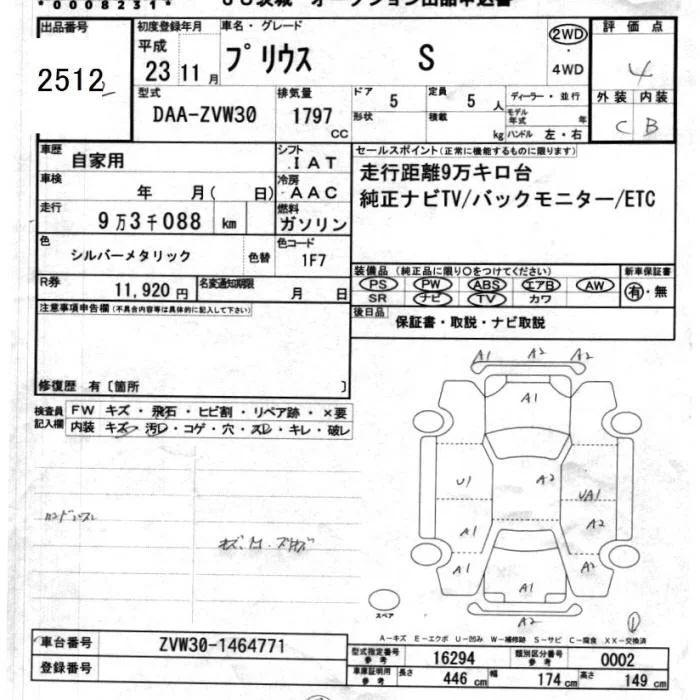 *0008231*
出品番号
2512
初度登録年月
平成
23 11月
車名・グレード
プリウス S
2WD
4WD
評価点
4
外装 内装
C B
型式
DAA-ZVW30
排気量
1797
CC
ドア 5
定員 5 人
形状
積載 kg
ディーラー・並行
モデル年式 年
ハンドル 左・右
車歴
自家用
シフト
IAT
車検
年 月( 日)
冷房
AAC
走行
9万3千088 km
燃料
ガソリン
色
シルバーメタリック
色替
色コード
1F7
R券
11,920円
名変通知期限
月 日
セールスポイント(正常に機能するものに限ります)
走行距離9万キロ台
純正ナビTV/バックモニター/ETC
装備品 (純正品に限り○をつけてください)
PS PW ABS エアB AW
SR ナビ TV カワ
新車保証書
有・無
後日品
保証書・取説・ナビ取説
注意事項申告欄(不具合内容等は具体的に記入して下さい)
修復歴 有〔箇所 〕
検査員記入欄
FW キズ・飛石・ヒビ割・リペア跡・×要
内装 キズ・汚レ・コゲ・穴・スレ・キレ・破レ
A1 A2 A2
A1
U1 A2 UA1
A1 A2
A1 A1 A2
A2
スペア
A-キズ E-エクボ U-凹み W-補修跡 S-サビ C-腐食 XX-交換済
車台番号
ZVW30-1464771
登録番号
型式指定番号 参考
16294
類別区分番号 参考
0002
車庫証明用 参考
長さ 446 cm
幅 174 cm
高さ 149 cm